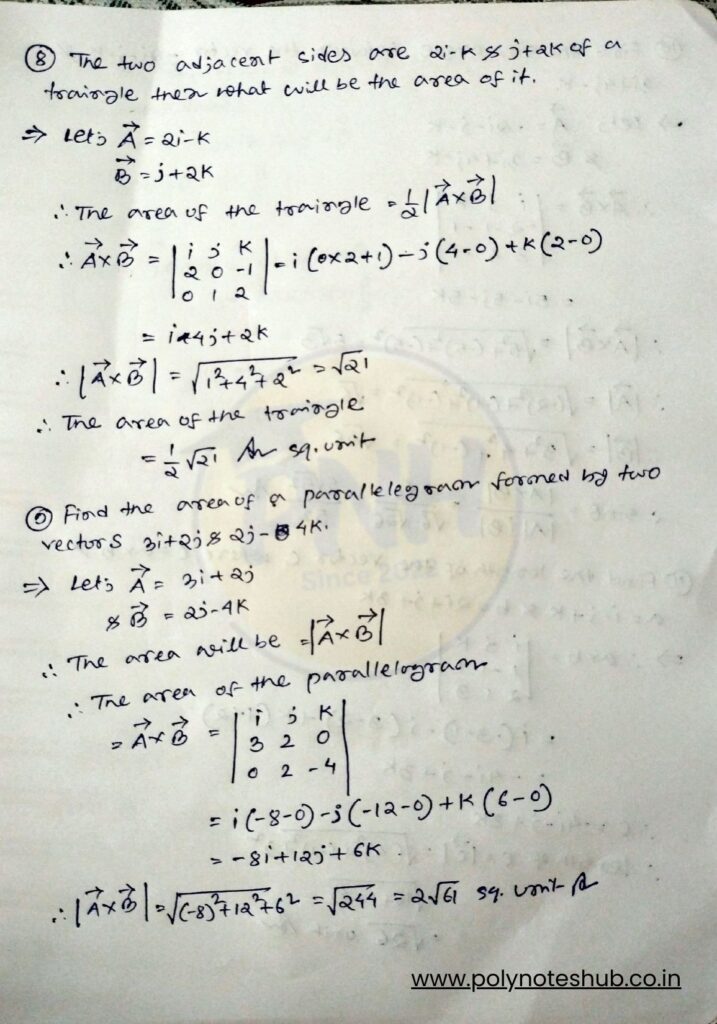 ⑧ The two adjacent sides are 2i-K & j+2K of a
trairgle then what will be the area of it.
⇒ Let, A⃗ = 2i-K
B⃗ = j+2K
∴ The area of the trairgle = 1/2 |A⃗ × B⃗|
∴ A⃗ × B⃗ = | i j K | = i (0×2+1) - j (4-0) + K (2-0)
2 0 -1
0 1 2
= i-4j+2K
∴ |A⃗ × B⃗| = √(1²+4²+2²) = √21
∴ The area of the trairgle
= 1/2 √21 sq. unit
Find the area of a parallelegram formed by two
vectors 3i+2j & 2j-4K.
⇒ Let, A⃗ = 3i+2j
& B⃗ = 2j-4K
∴ The area will be = |A⃗ × B⃗|
∴ The area of the parallelogram
= A⃗ × B⃗ = | i j K |
3 2 0
0 2 -4
= i (-8-0) - j (-12-0) + K (6-0)
= -8i+12j+6K
∴ |A⃗ × B⃗| = √((-8)²+12²+6²) = √244 = 2√61 sq. unit
PNH
Since 2022
www.polynoteshub.co.in